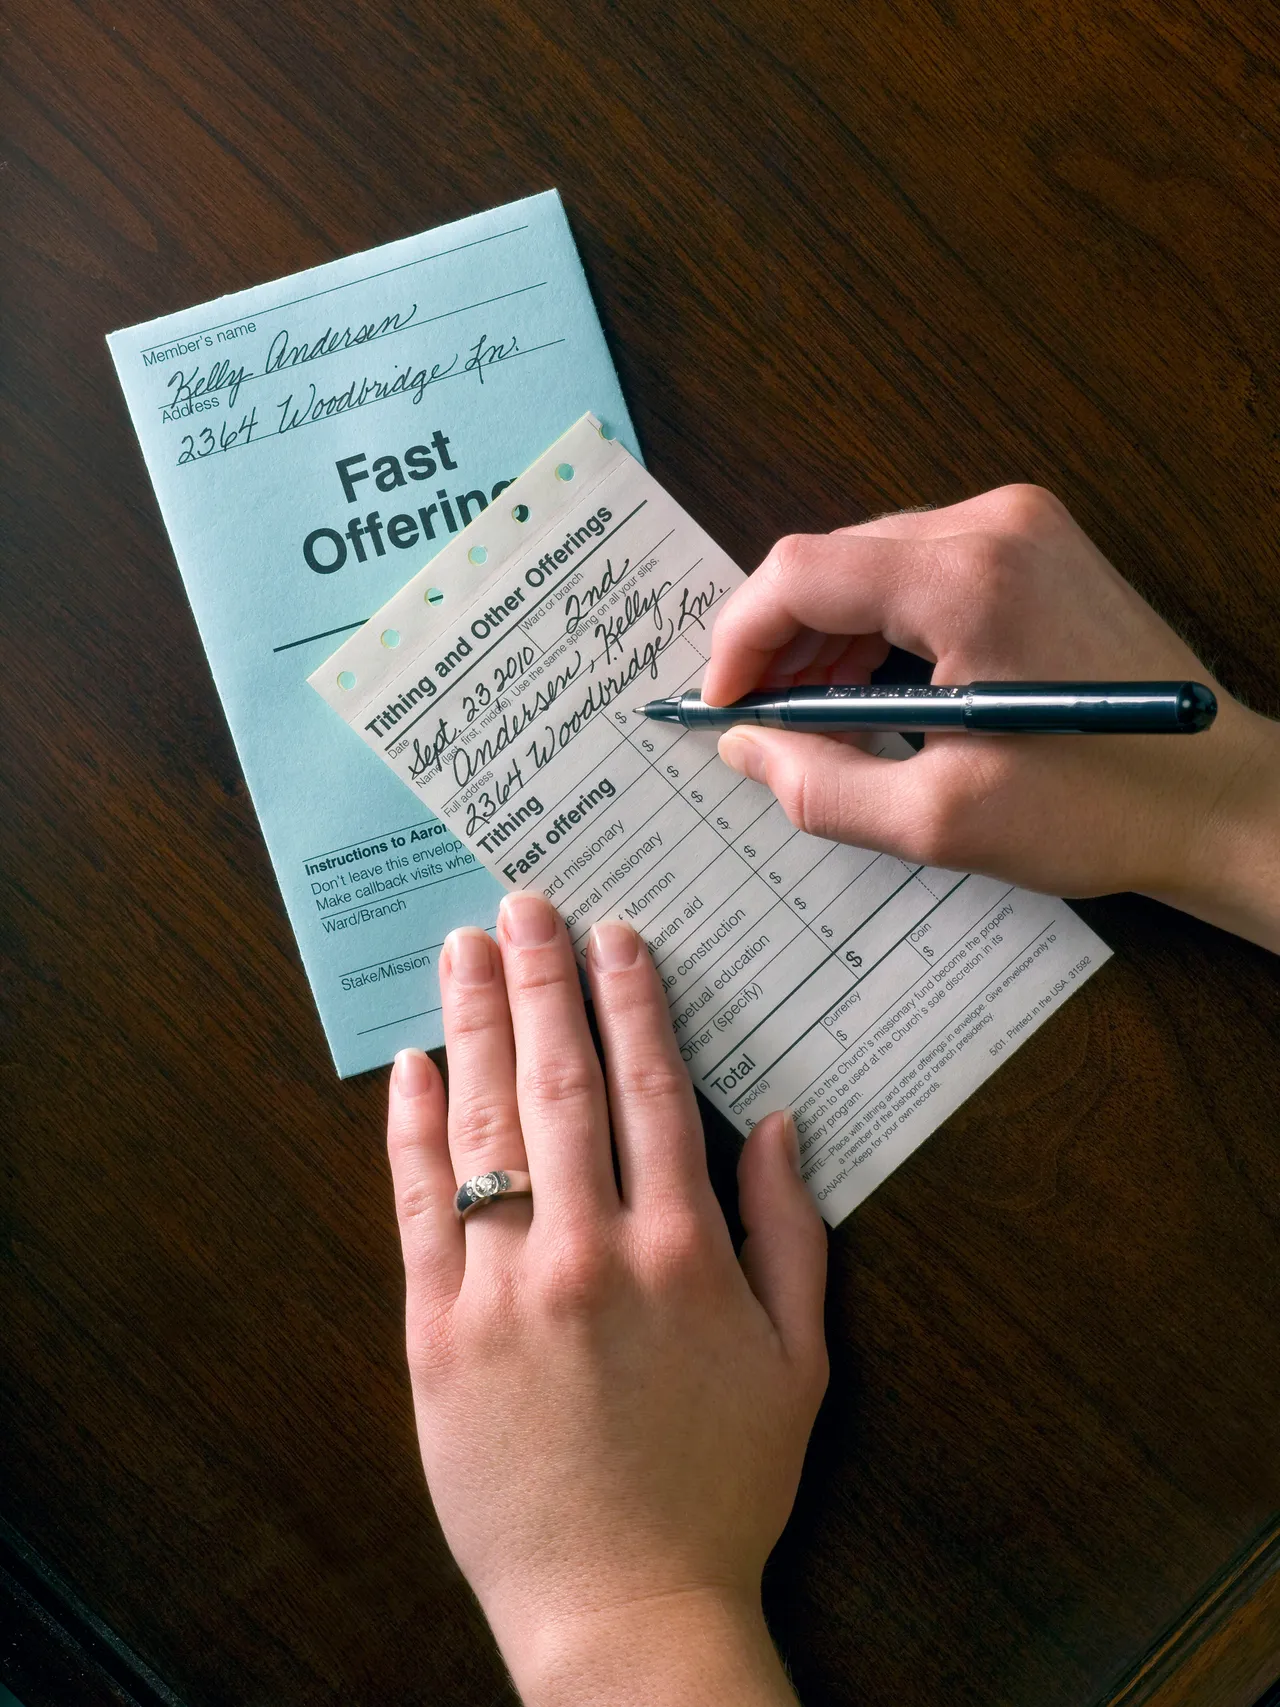 Member's name
Kelly Andersen
Address
2364 Woodbridge Ln.
Fast
Offering
Instructions to Aaron
Don't leave this envelop
Make callback visits when
Ward/Branch
Stake/Mission
Tithing and Other Offerings
Date
Ward or branch
Sept. 23 2010
2nd
Name (last, first, middle). Use the same spelling on all your slips.
Andersen, Kelly
Full address
2364 Woodbridge Ln.
Tithing
$
Fast offering
$
ard missionary
$
eneral missionary
$
f Mormon
$
itarian aid
$
le construction
$
rpetual education
$
Other (specify)
$
Total
$
Check(s)
$
Currency
$
Coin
$
ations to the Church's missionary fund become the property
Church to be used at the Church's sole discretion in its
sionary program.
WHITE—Place with tithing and other offerings in envelope. Give envelope only to
a member of the bishopric or branch presidency.
CANARY—Keep for your own records.
5/01. Printed in the USA. 31592
PILOT V BALL EXTRA FINE